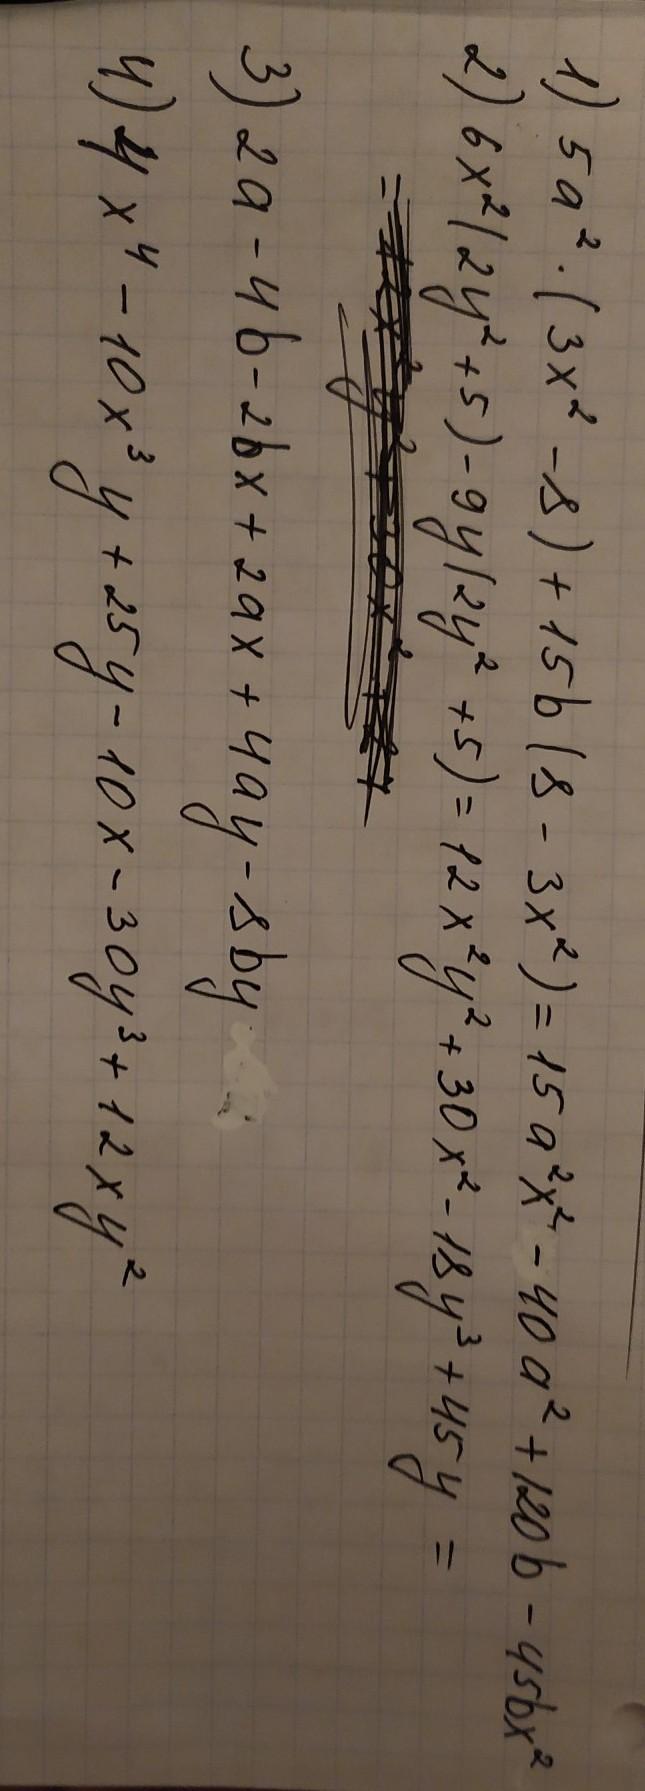 1) 5a² · (3x² - 8) + 15b(8 - 3x²) = 15a²x² - 40a² + 120b - 45bx²
2) 6x²(2y² + 5) - 9y(2y² + 5) = 12x²y² + 30x² - 18y³ + 45y =
=
3) 2a - 4b - 2bx + 2ax + 4ay - 8by
4) 4x⁴ - 10x³y + 25y - 10x - 30y³ + 12xy²